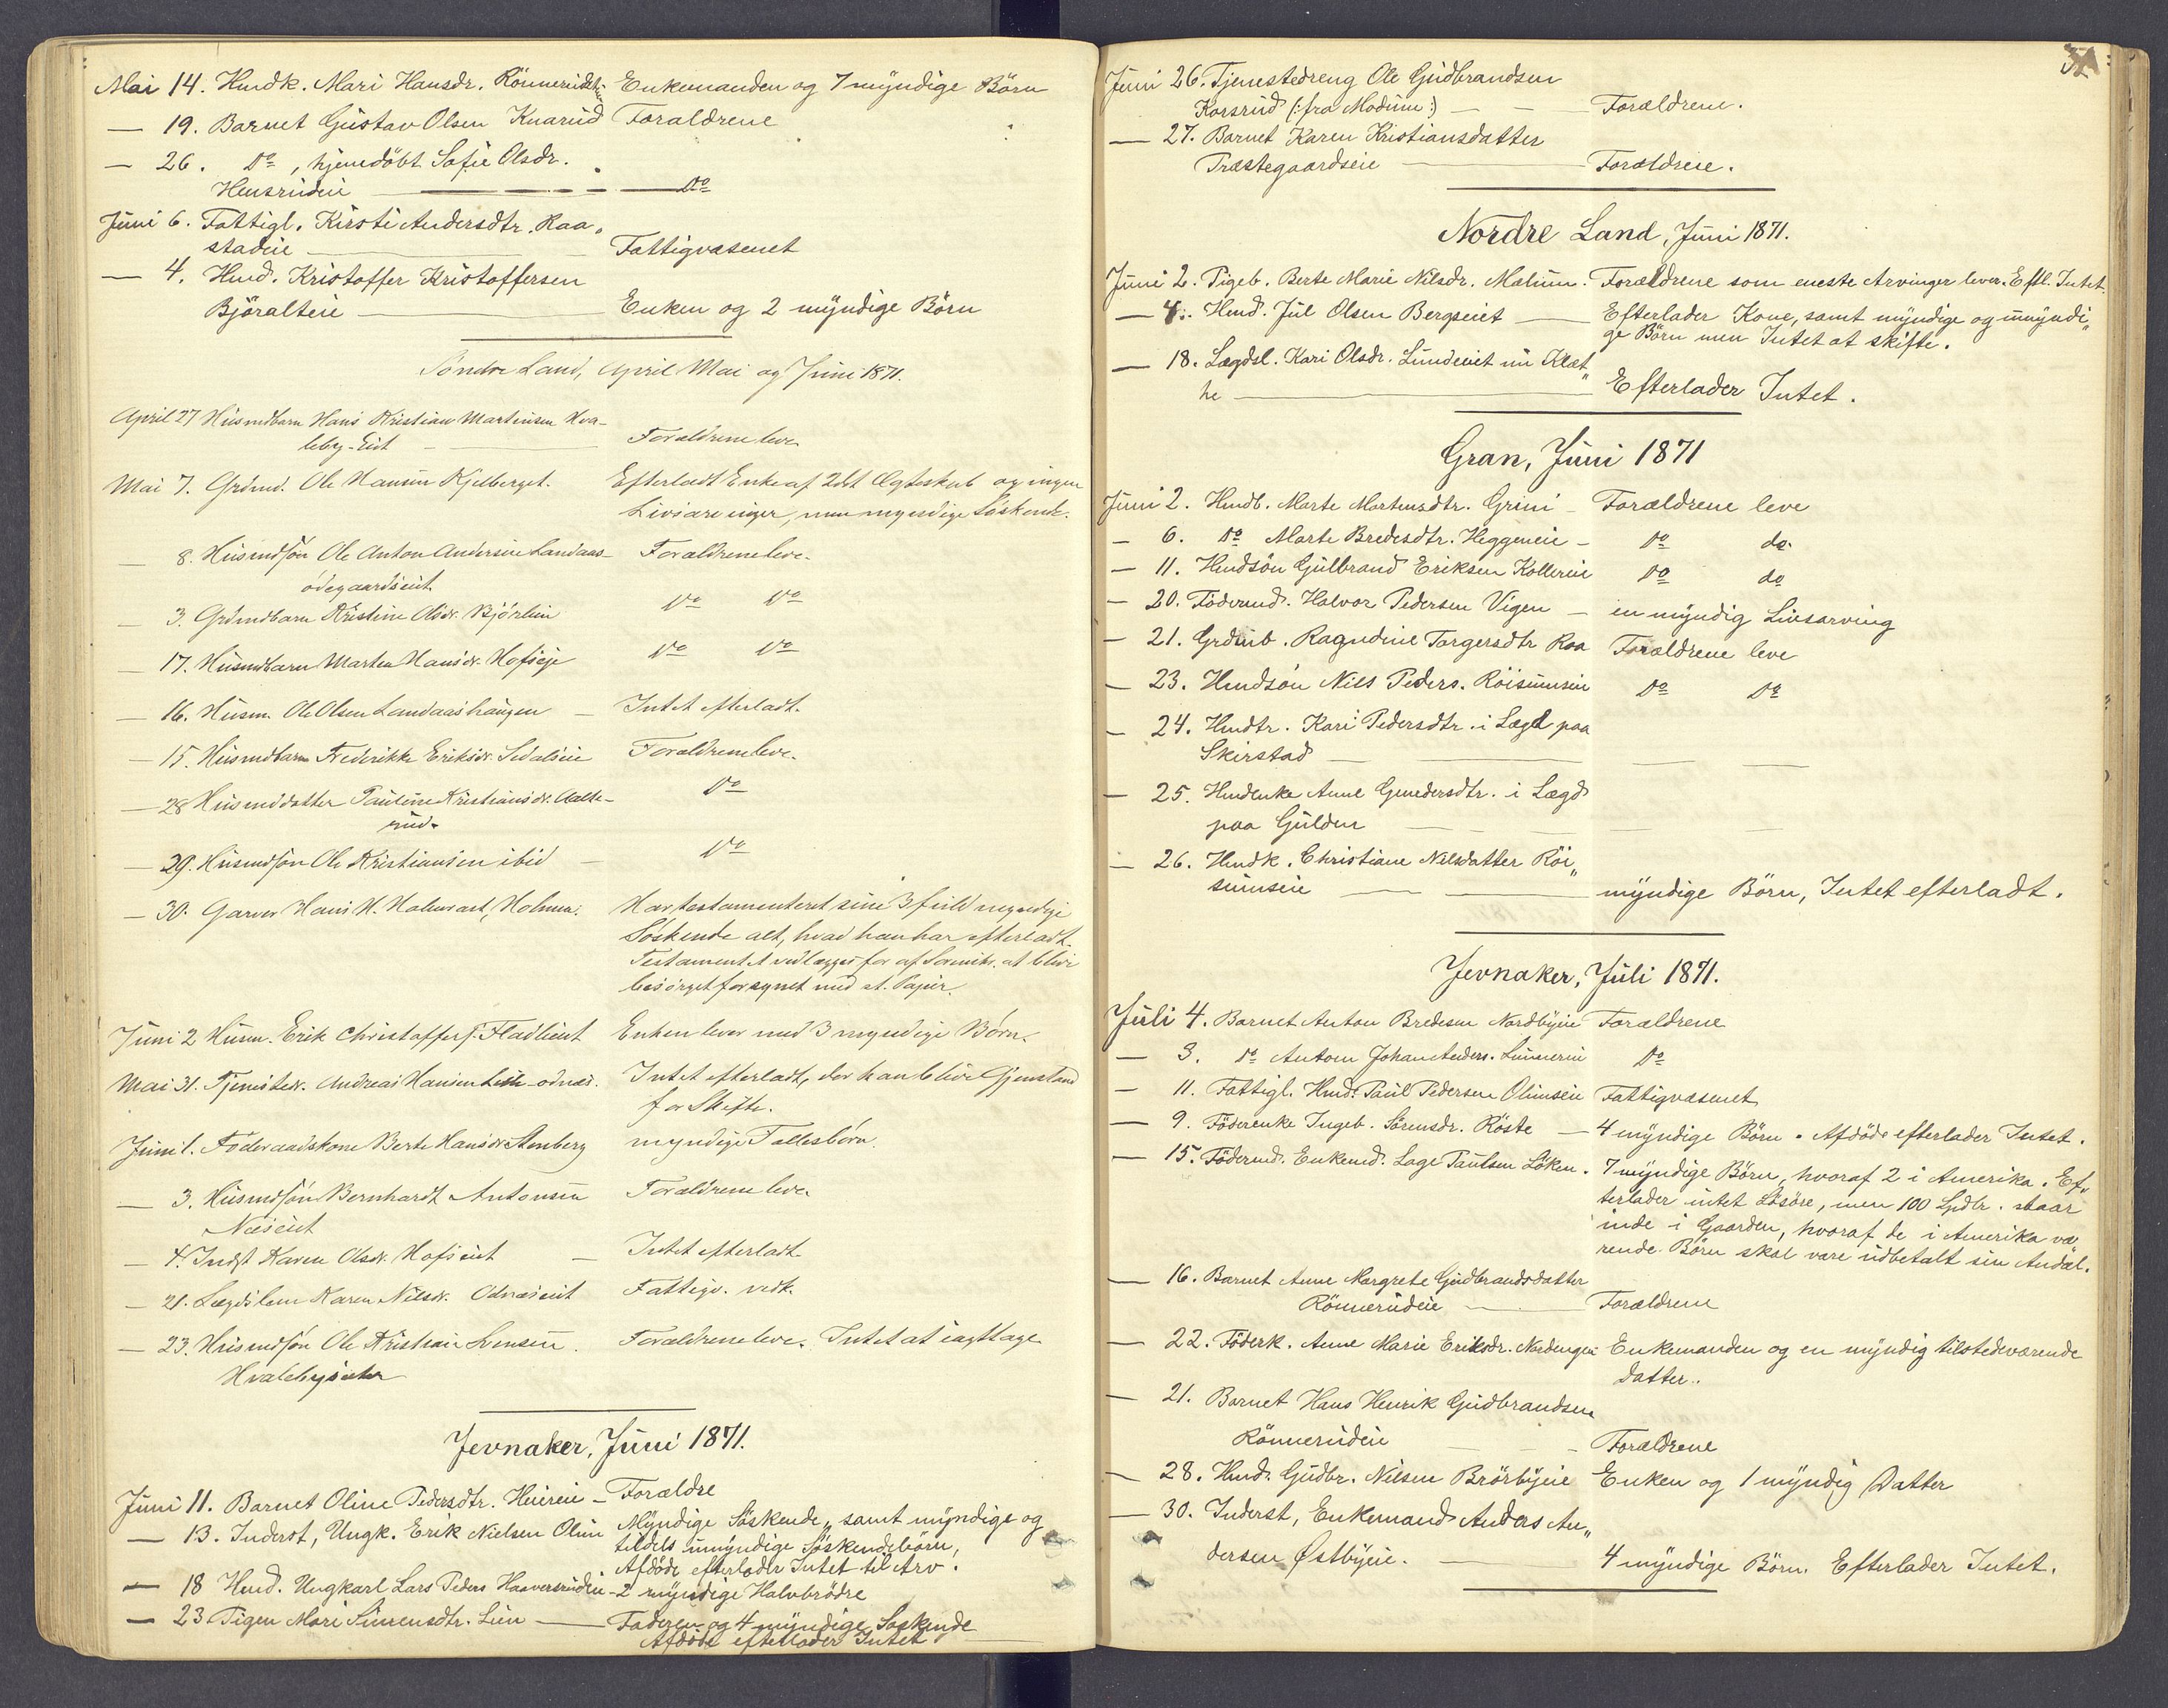 Mai 14. Hmdk. Mari Hansdr. Rönnerudei Enkemanden og 7 myndige Börn
— 19. Barnet Gustav Olsen Knarud Forældrene
— 26. Do, hjemedöbt Sofie Olsdr.
Hensrudeie — Do
Juni 6. Fattigl. Kirsti Andersdtr. Raa„
stadeie — Fattigvæsenet
— 4. Hmd. Kristoffer Kristoffersen
Björalteie — Enken og 2 myndige Börn
Söndre Land, April Mai og Juni 1871.
April 27 Husmdbarn Hans Kristian Martinsen Hva-
leby-Eiet — Forældrene leve.
Mai 7. Grdmd. Ole Hansen Kjelberget. Efterladt Enke af 2det Ægteskab og ingen
Livsarvinger, men myndige Söskende.
— 8. Husmdsön Ole Anton Andersen Landaas- Forældrene leve.
ödegaardseiet.
— 3. Grdmdbarn Kristine Olsdr. Björlien Do Do
— 17. Husmdbarn Marthea Hansdr. Hofseje Do Do
— 16. Husm. Ole Olsen Landaashaugen — Intet efterladt.
— 15. Husmdbarn Frederikke Eriksdr. Sedalseie Forældrene leve.
— 28 Husmddatter Pauline Kristiansdr. Aalte- Do
rud.
— 29. Husmdsön Ole Kristiansen ibid — Do
— 30. Garver Hans H. Halvorsen, Holmen. Har testamenteret sine 3 fuldmyndige
Söskende alt, hvad han har efterladt.
Testamentet vedlægges for af Sorenskr. at blive
besörget forsynet med st. Papir.
Juni 2 Husm. Erik Christoffers. Fladlieiet Enken lever med 3 myndige Börn.
Mai 31. Tjenestedr. Andreas Hansen Odnæs. Intet efterladt, der kan blive Gjenstand
for Skifte.
Juni 1. Föderaadskone Berte Hansdr. Stenberg myndige Fællesbörn.
— 3. Husmdsön Bernhardt Antonsen Forældrene leve.
Næseiet
— 4. Indst Karen Olsdr. Hofseiet — Intet efterladt
— 21. Lægdslem Karen Nilsdr. Odnæseiet Fattigv. vedk.
— 23. Husmdsön Ole Kristian Svensen. Forældrene leve. Intet at iagttage
Hvalebyeiet
Jevnaker, Juni 1871.
Juni 11. Barnet Oline Pedersdtr. Heiereie — Forældre
— 13. Inderst, Ungk. Erik Nielsen Olim Myndige Söskende, samt myndige og
tildels umyndige Söskendebörn,
Afdöde efterlader Intet til Arv.
— 18 Hmd. Ungkarl Lars Peders Haaversrudeie — 2 myndige Halvbrödre
— 23. Pigen Mari Simensdtr. Lien — Faderen og 4 myndige Söskende
Afdöde efterlader Intet
Juni 26. Tjenestedreng Ole Gudbrandsen
Korsrud (: fra Modum :) — Forældrene.
— 27. Barnet Karen Kristiansdatter
Præstegaardseie — Forældrene.
Nordre Land, Juni 1871.
Juni 2. Pigeb. Berte Marie Nilsdr. Malum. Forældrene som eneste Arvinger lever. Eftl. Intet.
— 4. Hmd. Jul Olsen Bergseiet — Efterlader Kone, samt myndige og umyndi„
ge Börn men Intet at skifte.
— 18. Lægdsl. Kari Olsdr. Lundeeiet nu Klæt„
he — Efterlader Intet.
Gran, Juni 1871
Juni 2. Hmdb. Marte Mortensdtr. Grini — Forældrene leve
— 6. Do Marte Bredesdtr. Heggeneie — Do do.
— 11. Hmdsön Gulbrand Eriksen Kollereie Do do
— 20. Födermd. Halvor Pedersen Vigen — en myndig Livsarving
— 21. Grdmb. Ragndine Torgersdtr Raa Forældrene leve
— 23. Hmdsön Nils Peders. Röisumseie Do Do
— 24. Hmdtr. Kari Pedersdtr. i Lægd paa
Skirstad — — — —
— 25. Hmdenke Anne Gmedersdtr. i Lægd
paa Gulden — — — —
— 26. Hmdk. Christiane Nilsdatter Röi„
sumseie — — myndige Börn, Intet efterladt.
Jevnaker, Juli 1871.
Juli 4. Barnet Anton Bredesen Nordbyeie Forældrene
— 3. Do Antom Johan Anders. Lunnereie Do
— 11. Fattigl. Hmd. Paul Pedersen Olimseie Fattigvæsenet
— 9. Föderenke Ingeb. Sörensdr. Röste — 4 myndige Börn. Afdöde efterlader Intet.
— 15. Födermd. Enkemd. Lage Paulsen Löken. 7 myndige Börn, hvoraf 2 i Amerika. Ef„
terlader intet Lösöre, men 100 Spdlr. staar
inde i Gaarden, hvoraf de i Amerika væ
rende Börn skal være udbetalt sin Andel.
— 16. Barnet Anne Margrete Gudbrandsdatter
Rönnerudeie — Forældrene
— 22. Föderk. Anne Marie Eriksdr. Nordengen Enkemanden og en myndig tilstedeværende
Datter.
— 21. Barnet Hans Henrik Gudbrandsen
Rönnerudeie — Forældrene
— 28. Hmd. Gudbr. Nilsen Brörbyeie Enken og 1 myndig Datter
— 30. Inderst, Enkemand Anders An„
dersen Østbyeie. — 4 myndige Börn. Efterlader Intet.